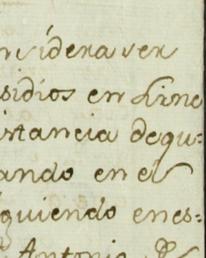 nsidera ser
sidios en Line
istancia de qu:
ando en el
guiendo en es-
Antonio